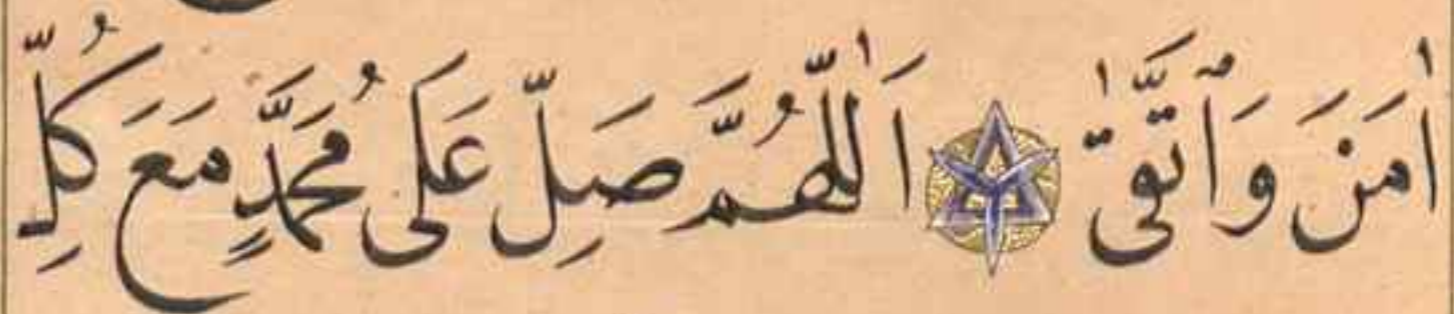 اٰمَنَ وَٱتَّقٰى اَللّٰهُمَّ صَلِّ عَلَى مُحَمَّدٍ مَعَ كُلِّ